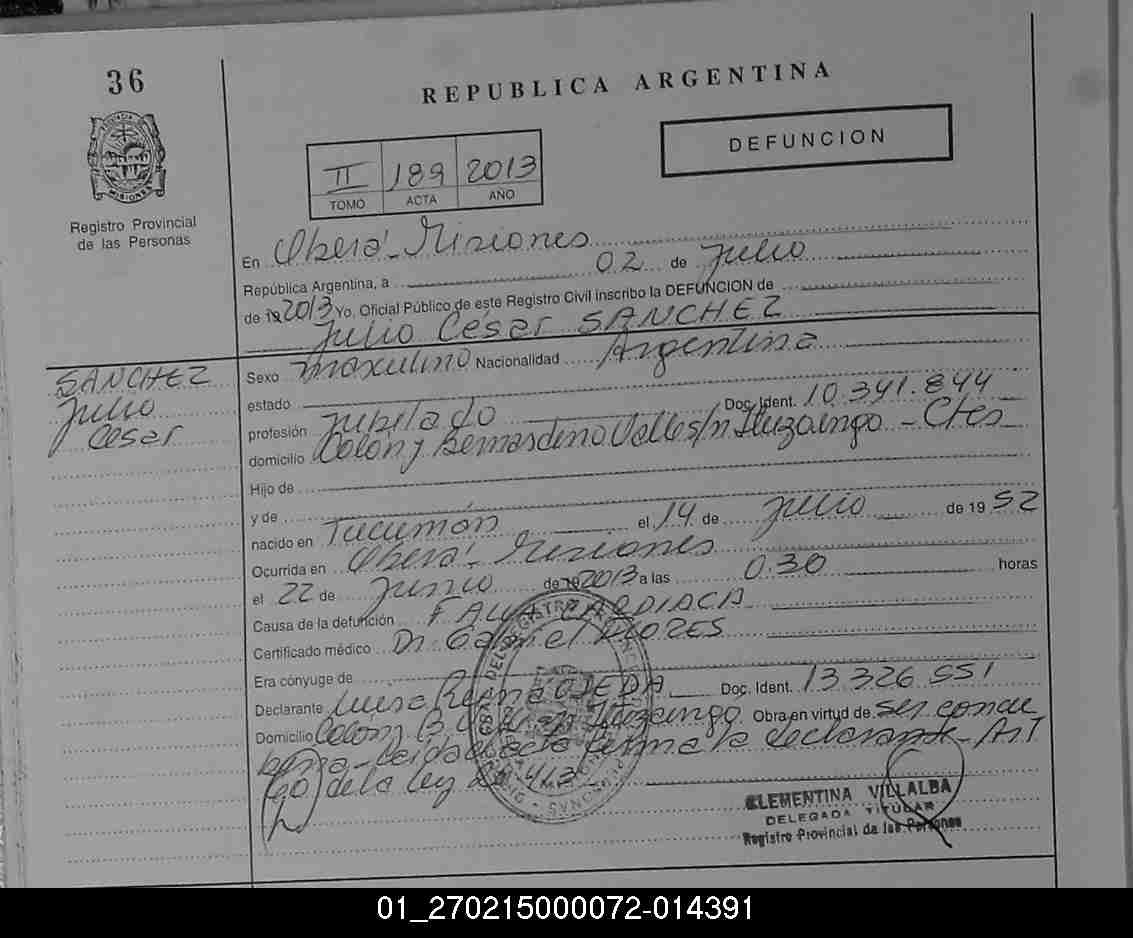 36
REPUBLICA ARGENTINA
DEFUNCION
II 189 2013
TOMO ACTA AÑO
Registro Provincial
de las Personas
En Oberá - Misiones
República Argentina, a 02 de Julio
de 19 2013 Yo, Oficial Público de este Registro Civil inscribo la DEFUNCION de
Julio César SANCHEZ
SANCHEZ
Julio
César
Sexo masculino Nacionalidad Argentina
estado Doc. Ident. 10.341.844
profesión Jubilado
domicilio Colón y Bernardino Valle s/n Ituzaingo - Ctes
Hijo de
y de
nacido en Tucumán el 14 de Julio de 19 52
Ocurrida en Oberá - Misiones
el 22 de Junio de 19 2013 a las 0.30 horas
Causa de la defunción FALLA CARDIACA
Certificado médico Dr. Gabriel FLORES
Era cónyuge de
Declarante Luisa OJEDA Doc. Ident. 13.326.551
Domicilio Colón y B. Ituzaingo Obra en virtud de ser concu
bina - Leída el acta firma la declarante - Art
(90) de la ley
CLEMENTINA VILLALBA
DELEGADA TITULAR
Registro Provincial de las Personas
01_270215000072-014391